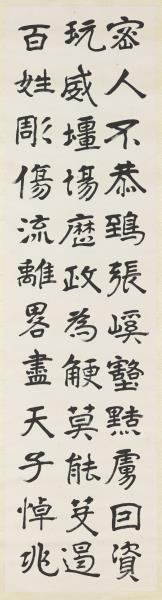 密人不恭鴟張蹊壑黠虜因資
玩威壃埸歷政為鯁莫能芟遏
百姓彫傷流離畧盡天子悼兆